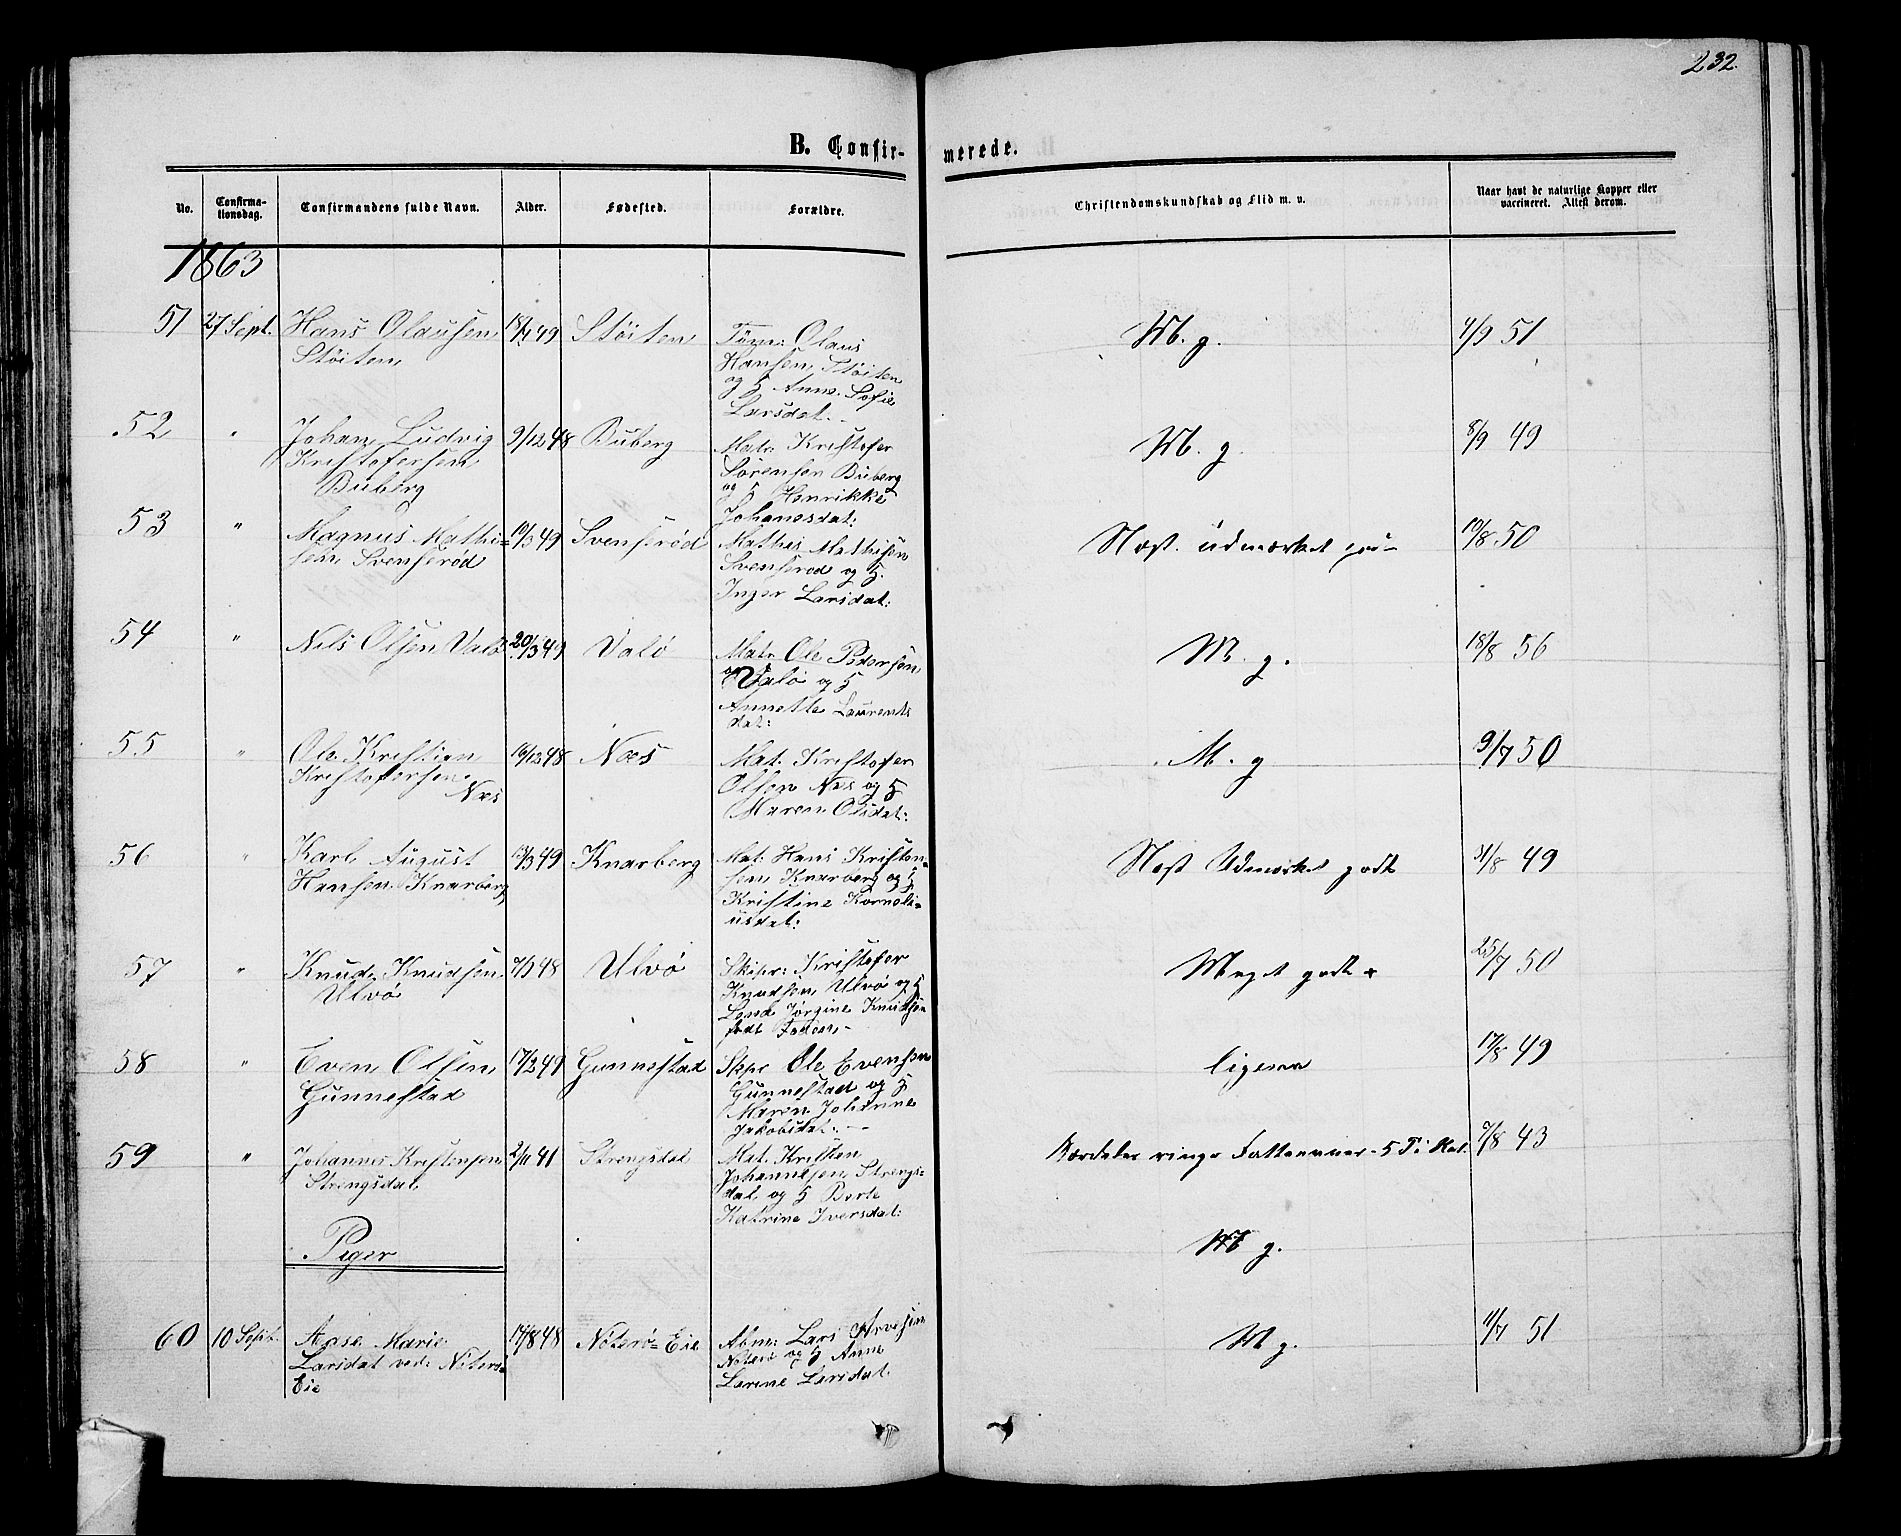 232.
B. Confir- merede.
No. Confirma-tionsdag. Confirmandens fulde Navn. Alder. Fødested. Forældre. Christendomskundskab og Flid m. v. Naar havt de naturlige Kopper eller vaccineret. Attest derom.
1863
51 27 Sept. Hans Olausen 18/4 49 Støiten Tøm: Olaus M. g. 4/9 51
Støiten Hansen Støiten
og H Anne Sofie
Larsdat.
52 " Johan Ludvig 9/12 48 Buberg Matr Kristofer M. g. 8/9 49
Kristofersen Sørensen Buberg
Buberg og H Henrikke
Johanesdat:
53 " Magnus Mathi= 10/3 49 Svenserød Mathis Mathisen Næst. udmærket 19/8 50
sen Svenserød Svenserød og H.
Inger Larsdat:
54 " Nils Olsen Valø 20/3 49 Valø Matr Ole Pedersen M. g. 18/8 56
Valø og H
Annette Laurents
dat:
55 " Ole Kristian 16/12 48 Næs Mat. Kristofer M. g 9/7 50
Kristofersen Olsen Næs og H
Næs Maren Olsdat:
56 " Karl August 12/3 49 Knarberg Mat: Hans Kristen= Næst Udmærket godt 31/8 49
Hansen Knarberg sen Knarberg og H
Kristine Korneli=
usdat:
57 " Knud Knudsen 7/3 48 Ulvø Skipr: Kristofer Meget godt 25/7 50
Ulvø Knudsen Ulvø og H
Jørgine Knudsen
født
58 " Even Olsen 17/2 49 Gunnestad Skpr Ole Evensen ligesaa 17/8 49
Gunnestad Gunnestad og H
Maren Johanne
Jakobsdat: -
59 " Johannes Kristensen 2/11 41 Strengsdal Mat. Kristen 7/8 43
Strengsdal Johannesen Strengs=
dal og H Berte
Katrine Iversdat:
Piger M g.
60 10 Sept. Aase Marie 14/8 48 Nøterø= Eie Abm: Lars M g. 11/7 51
Larsdat ved: Nøterø= Nøterø og H Anne
Eie Larine Larsdat.